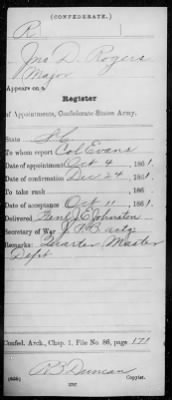 (CONFEDERATE.)
R
Jno D. Rogers
Major
Appears on a
Register
of Appointments, Confederate States Army.
State
To whom report Col Evans
Date of appointment Oct 4, 1861.
Date of confirmation Dec 24, 1861.
To take rank , 186 .
Date of acceptance Oct 11, 1861
Delivered Genl J E Johnston
Secretary of War J. P. Benj
Remarks: Quarter Master
Dept
Confed. Arch., Chap. 1, File No. 86, page 171
R B Duncan
Copyist.